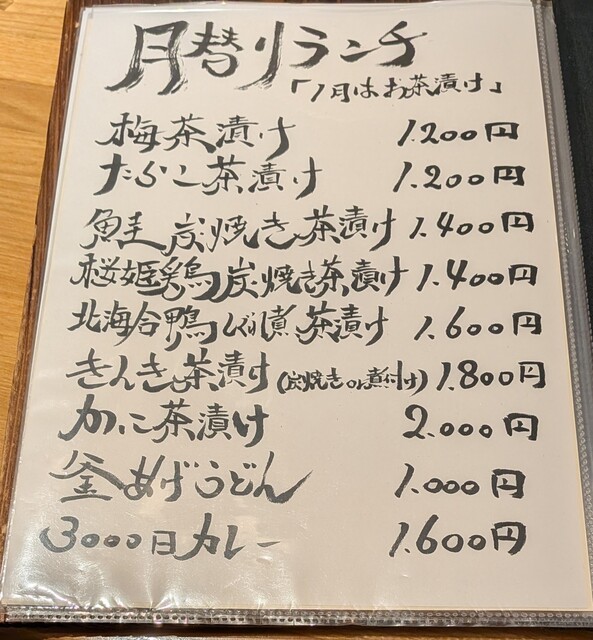 月替りランチ
「1月はお茶漬け」
梅茶漬け 1.200円
たらこ茶漬け 1.200円
鮭炭焼き茶漬け 1.400円
桜姫鶏炭焼き茶漬け 1.400円
北海合鴨ぐり煮茶漬け 1.600円
きんき茶漬け(炭焼きor煮付け) 1.800円
かに茶漬け 2.000円
釜あげうどん 1.000円
3000日カレー 1.600円